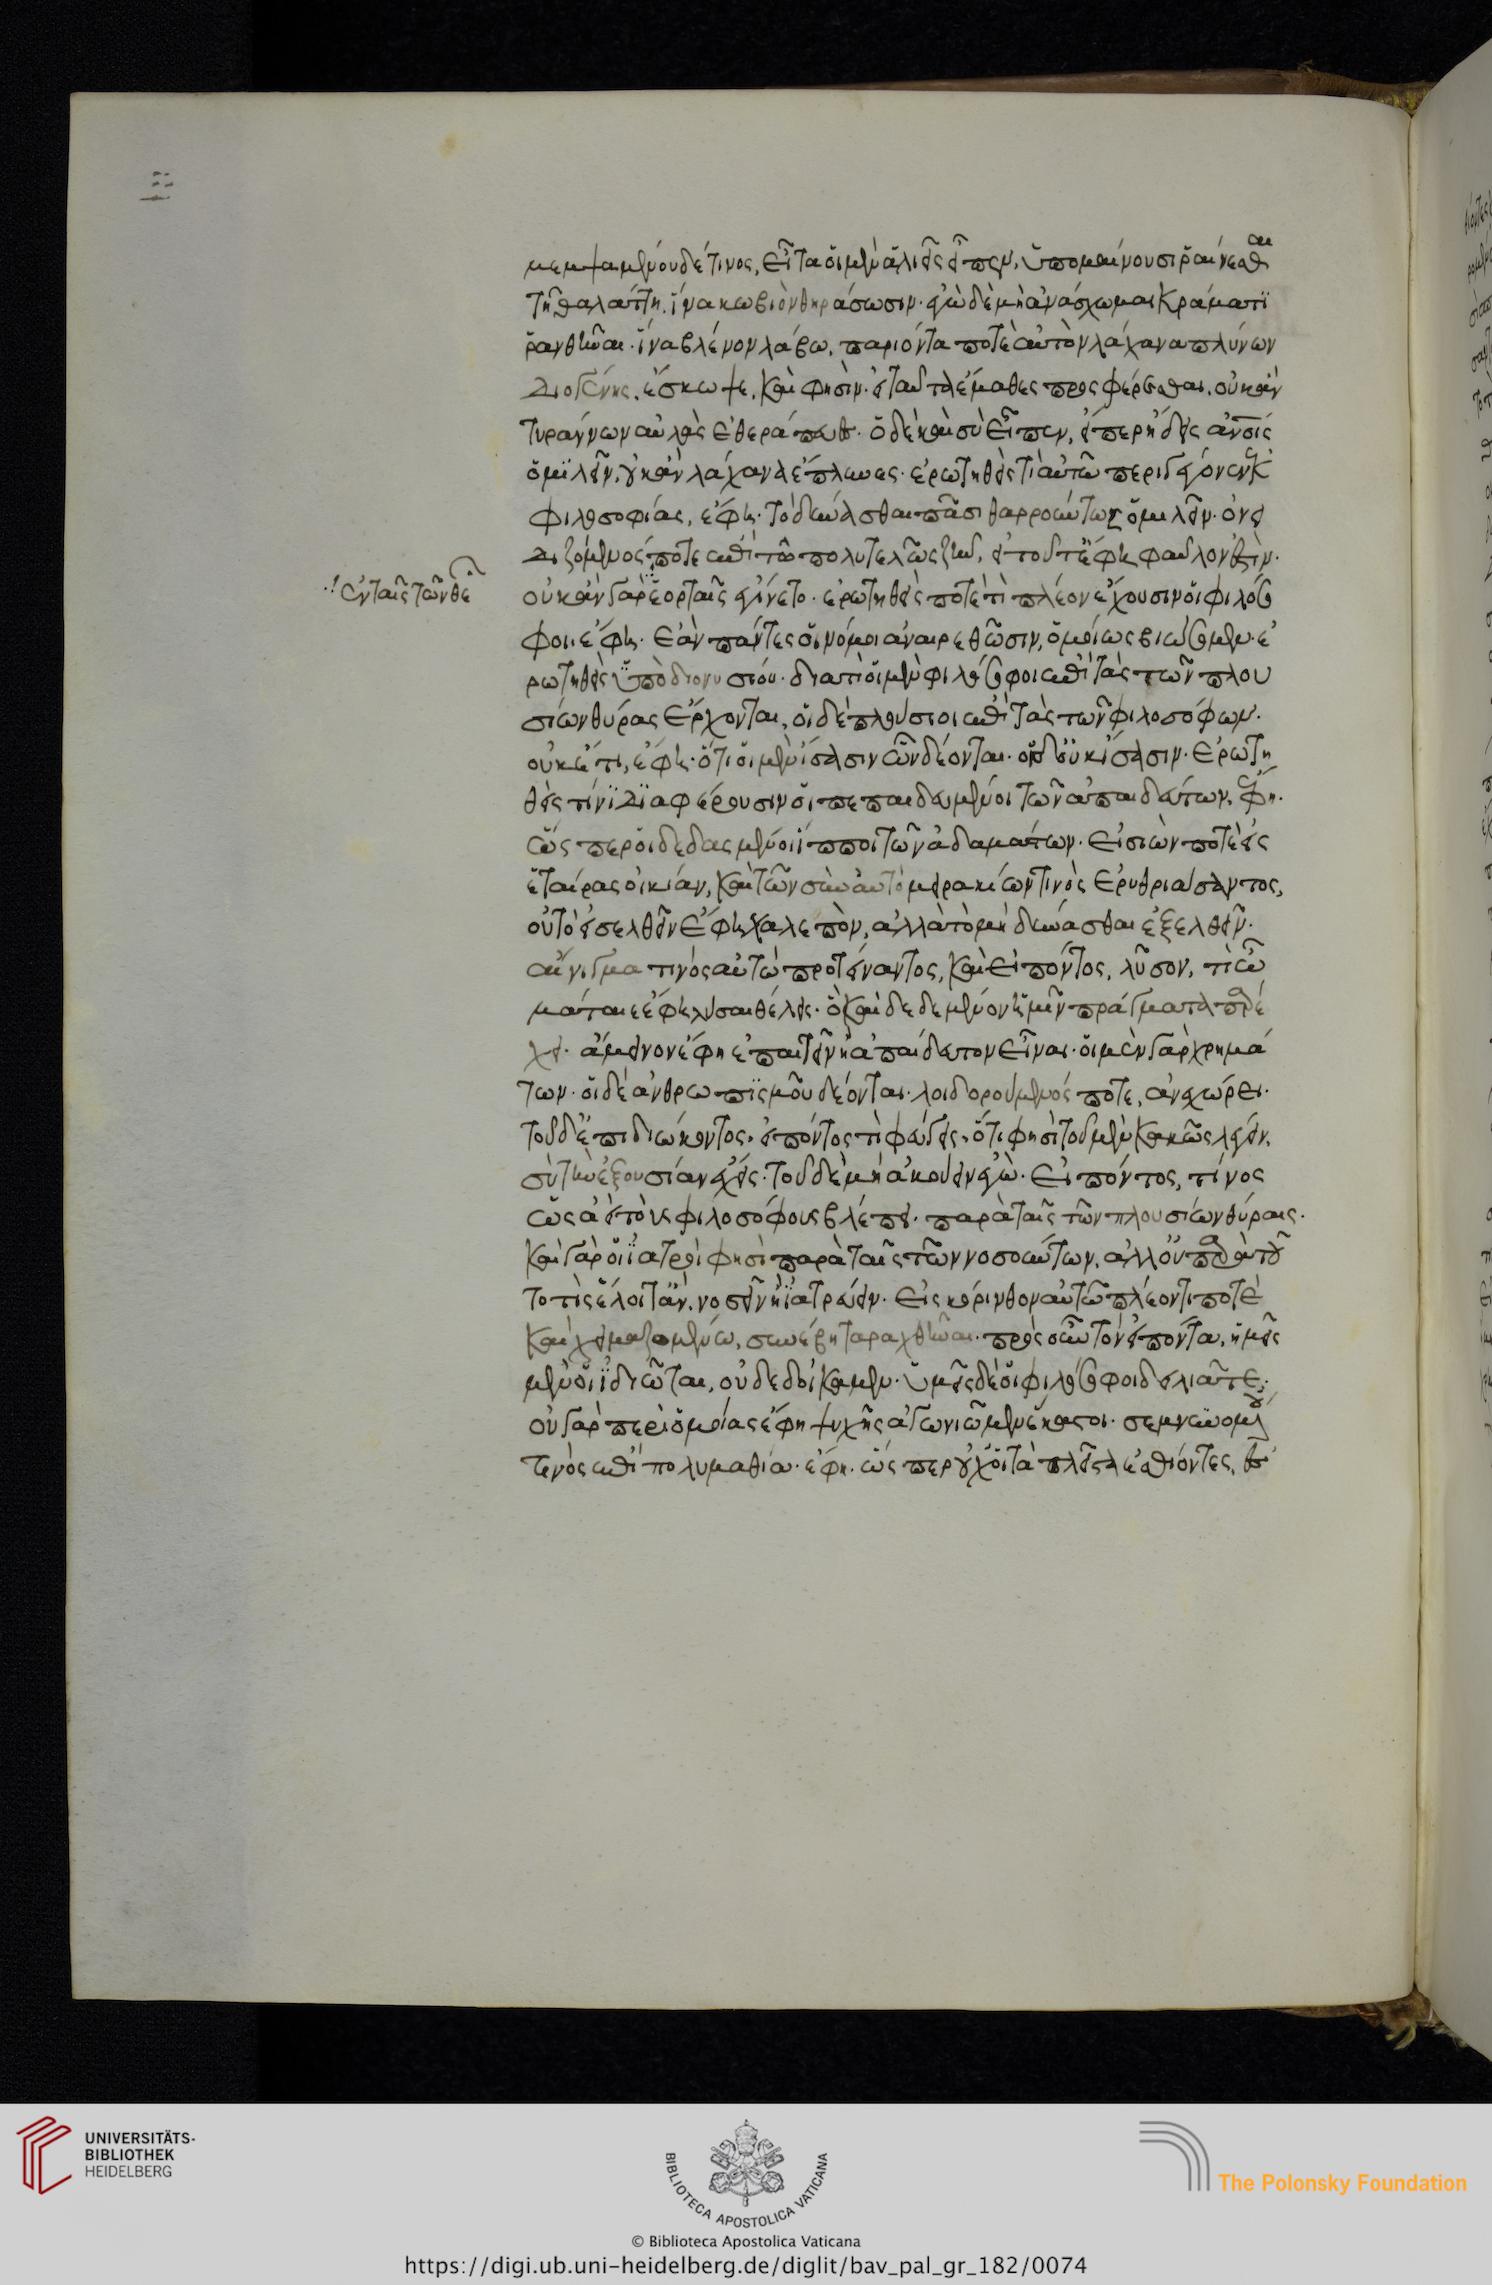 μεμψαμένου δέ τινος, εἶτα οἱ μὲν ἁλιεῖς εἶπεν, ὑπομένουσι ῥαίνεσθαι
τῇ θαλάττῃ. ἵνα κωβιὸν θηράσωσιν· ἐγὼ δὲ μὴ ἀνάσχωμαι κράματι
ῥανθῆναι· ἵνα βλένον λάβω. παριόντα ποτὲ αὐτὸν λάχανα πλύνων
Διογένης, ἔσκωψε, καὶ φησὶν· εἰ ταῦτα ἔμαθες προσφέρεσθαι, οὐκ ἂν
τυράννων αὐλὰς ἐθεράπευες· ὁ δὲ καὶ σὺ εἶπεν, εἴπερ ᾔδεις ἀνθρώποις
ὁμιλεῖν, οὐκ ἂν λάχανα ἔπλυνες· ἐρωτηθεὶς τί αὐτῷ περιγέγονεν ἐκ
φιλοσοφίας, ἔφη· τὸ δύνασθαι πᾶσι θαρρούντως ὁμιλεῖν· ὀνει
διζόμενός ποτε ἐπὶ τῷ πολυτελῶς ζῆν, εἰ τοῦτ' ἔφη φαῦλον ἐστὶν·
οὐκ ἂν γὰρ ἑορταῖς ἐγίνετο· ἐρωτηθεὶς ποτὲ τί πλέον ἔχουσιν οἱ φιλόσο
ἐν ταῖς τῶν θεῶν
φοι· ἔφη· ἐὰν πάντες οἱ νόμοι ἀναιρεθῶσιν, ὁμοίως βιώσομεν· ἐ
ρωτηθεὶς ὑπὸ διονυσίου· διὰ τί οἱ μὲν φιλόσοφοι ἐπὶ τὰς τῶν πλου
σίων θύρας ἔρχονται, οἱ δὲ πλούσιοι ἐπὶ τὰς τῶν φιλοσόφων·
οὐκέτι, ἔφη· ὅτι οἱ μὲν ἴσασιν ὧν δέονται· οἱ δ' οὐκ ἴσασιν· ἐρωτη
θεὶς τίνι διαφέρουσιν οἱ πεπαιδευμένοι τῶν ἀπαιδεύτων, ἔφη·
ὥσπερ οἱ δεδαμασμένοι ἵπποι τῶν ἀδαμάστων· εἰσιὼν ποτὲ εἰς
ἑταίρας οἰκίαν, καὶ τῶν σὺν αὐτῷ μειρακίων τινὸς ἐρυθριάσαντος,
οὐ τὸ εἰσελθεῖν ἔφη χαλεπὸν, ἀλλὰ τὸ μὴ δύνασθαι ἐξελθεῖν·
αἴνιγμά τινος αὐτῷ προτείναντος, καὶ εἰπόντος, λῦσον, τί ὦ
μάταιε ἔφη λῦσαι θέλεις· ὃ καὶ δεδεμένον ἡμῖν πράγματα παρέ
χει· ἄμεινον ἔφη ἐπαιτεῖν ἢ ἀπαίδευτον εἶναι· οἱ μὲν γὰρ χρημά
των· οἱ δὲ ἀνθρωπισμοῦ δέονται· λοιδορούμενός ποτε, ἀνεχώρει·
τοῦ δ' ἐπιδιώκοντος· εἰπόντος τί φεύγεις· ὅτι φησὶ τοῦ μὲν κακῶς λέγειν,
σὺ τὴν ἐξουσίαν ἔχεις· τοῦ δὲ μὴ ἀκούειν ἐγὼ· εἰπόντος, τινος
ὡς ἀεὶ τοὺς φιλοσόφους βλέποι παρὰ ταῖς τῶν πλουσίων θύραις·
καὶ γὰρ οἱ ἰατροί φησὶ παρὰ ταῖς τῶν νοσούντων, ἀλλ' οὐ παρὰ τοῦ
το τὶς ἕλοιτ' ἂν, νοσεῖν ἢ ἰατρεύειν· εἰς κόρινθον αὐτῷ πλέοντι ποτὲ
καὶ χειμαζομένῳ, συνέβη ταραχθῆναι· πρὸς οὖν τὸν εἰπόντα, ἡμεῖς
μὲν οἱ ἰδιῶται, οὐ δεδοίκαμεν· ὑμεῖς δὲ οἱ φιλόσοφοι δειλιᾶτε;
οὐ γὰρ περὶ ὁμοίας ἔφη ψυχῆς ἀγωνιῶμεν ἕκαστοι· σεμνυνομένου
τινὸς ἐπὶ πολυμαθίᾳ· ἔφη· ὥσπερ οὐχ οἱ τὰ πλεῖστα ἐσθίοντες,
UNIVERSITÄTS-
BIBLIOTHEK
HEIDELBERG
BIBLIOTECA APOSTOLICA VATICANA
The Polonsky Foundation
© Biblioteca Apostolica Vaticana
https://digi.ub.uni-heidelberg.de/diglit/bav_pal_gr_182/0074